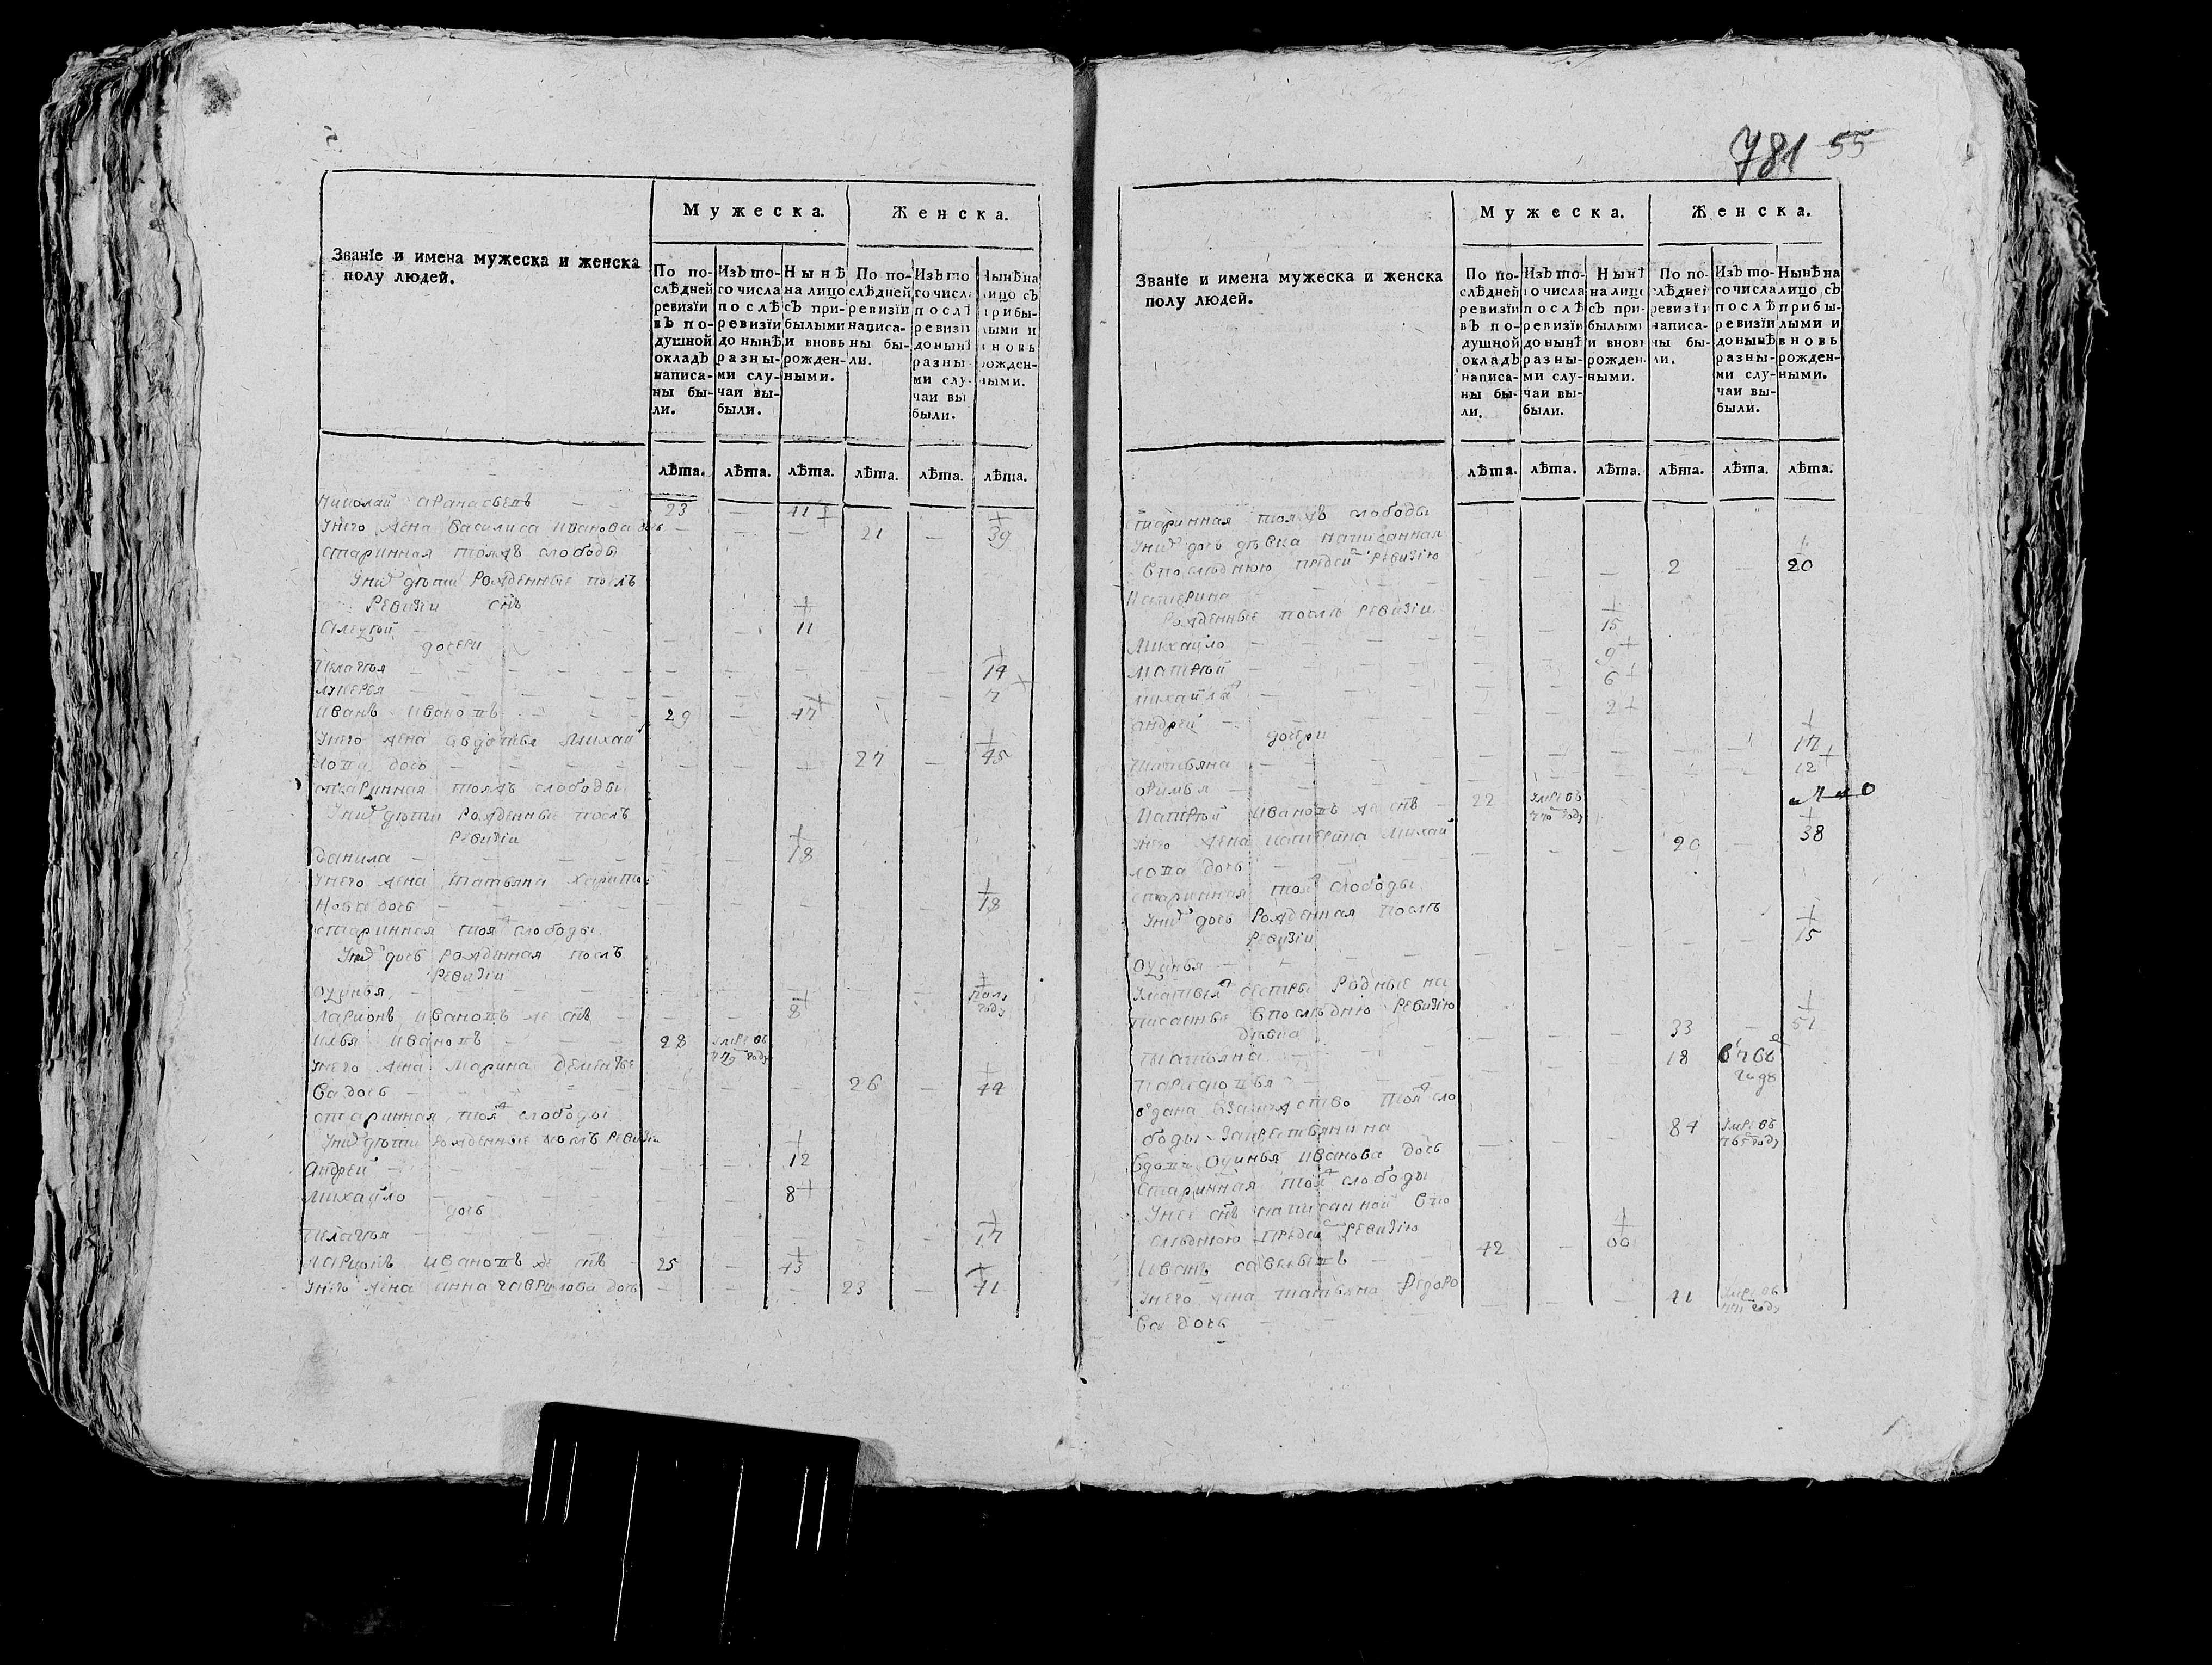 781 55
Званїе и имена мужеска и женска
полу людей.
Мужеска.
Женска.
По по-
слѣдней
ревизїи
въ по-
душной
окладъ
написа-
ны бы-
ли.
Изъ то-
го числа
послѣ
ревизїи
до нынѣ
разны-
ми слу-
чаи вы-
были.
Нынѣ
на лицо
съ при-
былыми
и вновь
рожден-
ными.
По по-
слѣдней
ревизїи
написа-
ны бы-
ли.
Изъ то
го числа
послѣ
ревизїи
до нынѣ
разны-
ми слу-
чаи вы
были.
Нынѣ на
лицо съ
прибы-
лыми и
вновь
рожден-
ными.
лѣта. лѣта. лѣта. лѣта. лѣта. лѣта.
23 — 41
Унего жена Василиса Иванова дочь — — 21 — 39
старинная тояжъ слободы
Унихъ дѣти рожденные послѣ
Ревизїи снъ
Алексѣй 11
дочери
Пелагея 14
Лукерья 7
Иванъ Ивановъ 29 — 47
Унего жена Авдотья Михаи
лова дочь 27 — 45
старинная тояжъ слободы
Унихъ дѣти рожденные послѣ
Ревизїи
Данила 18
Унего жена Татьяна Харито
нова дочь 18
старинная тояжъ слободы
Унихъ дочь рожденная послѣ
Ревизїи
полу
году
Ларионъ Ивановъ же снъ 8
Илья Ивановъ 28 умре въ
779 году
Унего жена Марина Дементье
ва дочь 26 — 44
старинная тояжъ слободы
Унихъ дѣти рожденные послѣ Ревизїи
Андрей 12
Михайло 8
дочь
Пелагея 17
Ларионъ Ивановъ же снъ 25 — 43
Унего жена Анна Гаврилова дочь — — — 23 — 41
Званїе и имена мужеска и женска
полу людей.
Мужеска.
Женска.
По по-
слѣдней
ревизїи
въ по-
душной
окладъ
написа-
ны бы-
ли.
Изъ то-
го числа
послѣ
ревизїи
до нынѣ
разны-
ми слу-
чаи вы-
были.
Нынѣ
на лицо
съ при-
былыми
и вновь
рожден-
ными.
По по-
слѣдней
ревизїи
написа-
ны бы-
ли.
Изъ то-
го числа
послѣ
ревизїи
до нынѣ
разны-
ми слу-
чаи вы-
были.
Нынѣ на
лицо съ
прибы-
лыми и
вновь
рожден-
ными.
лѣта. лѣта. лѣта. лѣта. лѣта. лѣта.
старинная тояжъ слободы
Унихъ дочь дѣвка написанная
впослѣднюю предъ сей Ревизїю
Катерина 2 — 20
Рожденные послѣ Ревизїи
Михайло 15
Матвѣй 9
Михайла 6
Андрей 2
дочери
Татьяна 17
12
Матвѣй Ивановъ же снъ 22 умре въ
Унего жена Катерина Михаи
лова дочь 20 — 38
старинная тояжъ слободы
Унихъ дочь рожденная послѣ
Ревизїи
15
сестры родные на
писанные впослѣднюю Ревизїю
дѣвка
Татьяна 33 — 51
18
году
тояж сло
боды закрестьянина
Вдова Иванова дочь 84 умре въ
году
Старинная тояж слободы
Унее снъ написанной впо
слѣднюю предъ сей Ревизїю
Иванъ Савельевъ 42 — 60
Унего жена Татьяна Федоро
ва дочь 41 умре въ
году